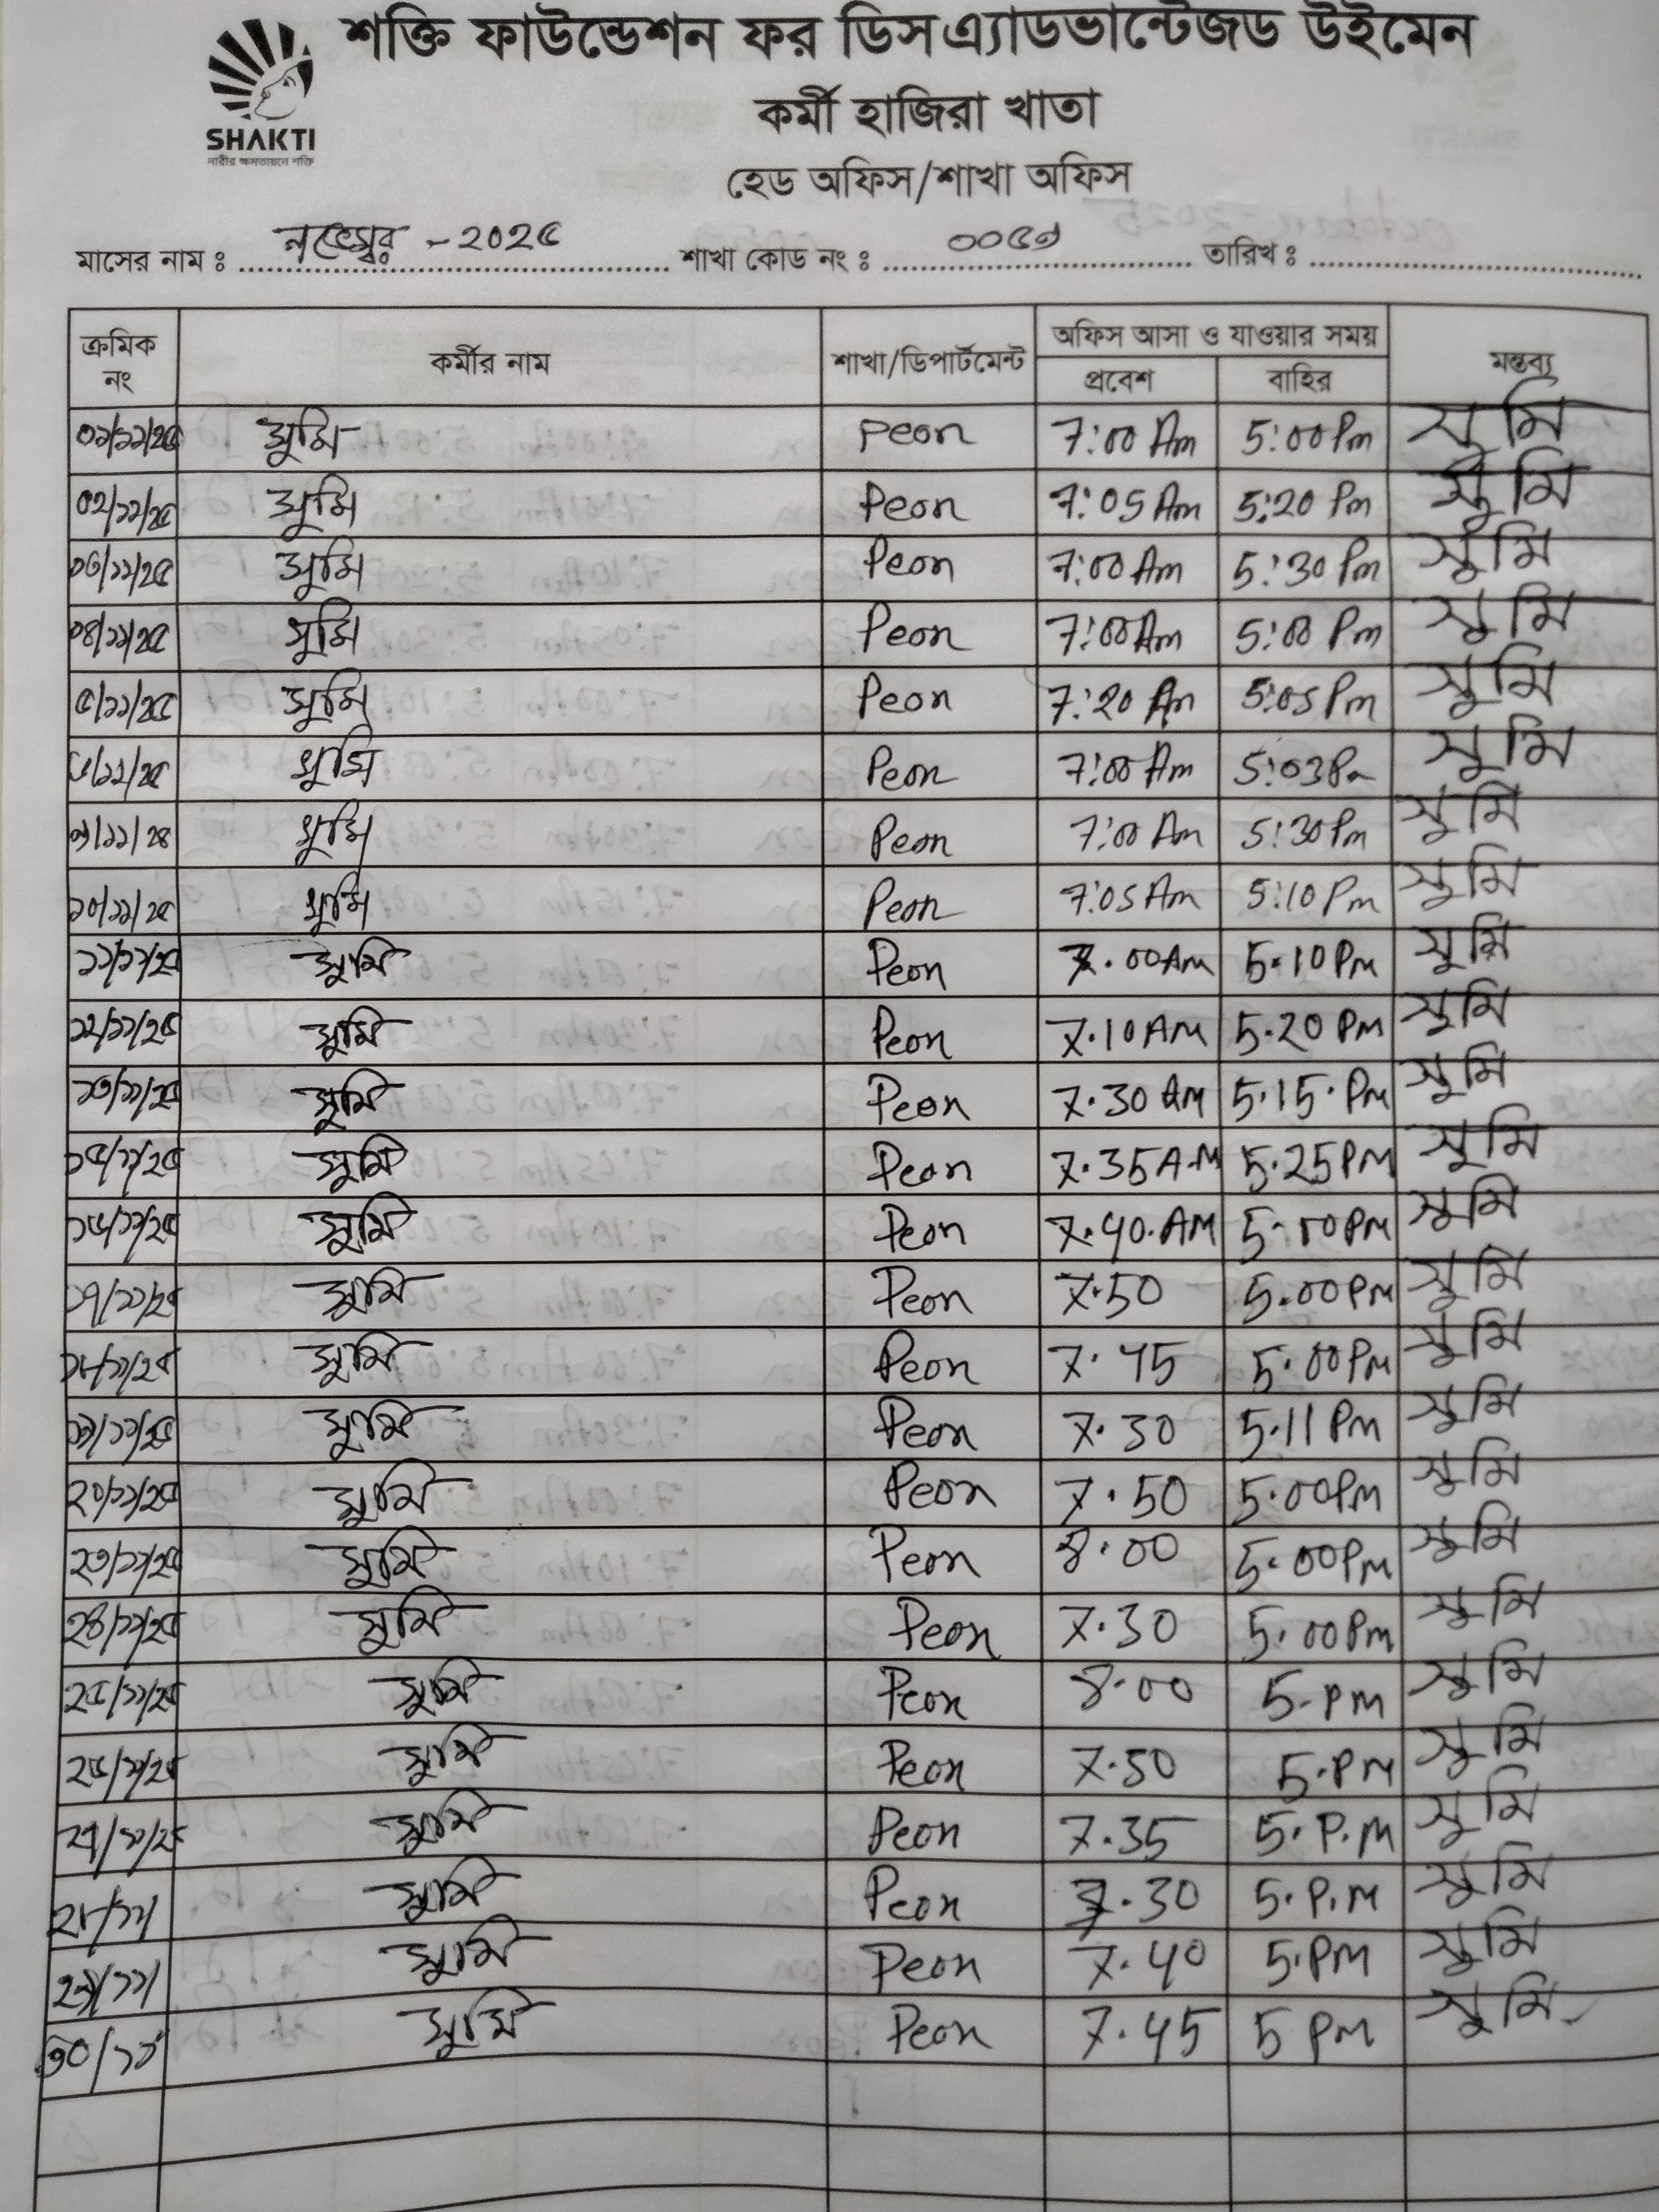 শক্তি ফাউন্ডেশন ফর ডিসএ্যাডভান্টেজড উইমেন
SHAKTI
নারীর ক্ষমতায়নে শক্তি
কর্মী হাজিরা খাতা
হেড অফিস/শাখা অফিস
মাসের নাম ঃ নভেম্বর - ২০২৫ শাখা কোড নং ঃ ০০৫৭ তারিখ ঃ
ক্রমিক নং কর্মীর নাম শাখা/ডিপার্টমেন্ট অফিস আসা ও যাওয়ার সময় মন্তব্য
প্রবেশ বাহির
০১/১১/২৫ সুমি Peon 7:00 Am 5:00 Pm সুমি
০২/১১/২৫ সুমি Peon 7:05 Am 5:20 Pm সুমি
০৩/১১/২৫ সুমি Peon 7:00 Am 5:30 Pm সুমি
০৪/১১/২৫ সুমি Peon 7:00 Am 5:00 Pm সুমি
৫/১১/২৫ সুমি Peon 7:20 Am 5:05 Pm সুমি
৬/১১/২৫ সুমি Peon 7:00 Am 5:03 Pm সুমি
সুমি Peon 7:00 Am 5:30 Pm সুমি
১০/১১/২৫ সুমি Peon 7:05 Am 5:10 Pm সুমি
১১/১১/২৫ সুমি Peon 7.00 AM 5.10 Pm সুমি
১২/১১/২৫ সুমি Peon 7.10 AM 5.20 PM সুমি
১৩/১১/২৫ সুমি Peon 7.30 AM 5.15. PM সুমি
১৫/১১/২৫ সুমি Peon 7.35 A.M 5.25 PM সুমি
১৬/১১/২৫ সুমি Peon 7.40. AM 5.10 PM সুমি
১৭/১১/২৫ সুমি Peon 7.50 5.00 PM সুমি
১৮/১১/২৫ সুমি Peon 7.45 5.00 PM সুমি
১৯/১১/২৫ সুমি Peon 7.30 5.11 Pm সুমি
২০/১১/২৫ সুমি Peon 7.50 5.00 Pm সুমি
২৩/১১/২৫ সুমি Peon 8.00 5.00 Pm সুমি
২৪/১১/২৫ সুমি Peon 7.30 5.00 Pm সুমি
২৫/১১/২৫ সুমি Peon 8.00 5. PM সুমি
২৬/১১/২৫ সুমি Peon 7.50 5.PM সুমি
২৭/১১/২৫ সুমি Peon 7.35 5. P.M সুমি
২৮/১১ সুমি Peon 7.30 5. P.M সুমি
২৯/১১ সুমি Peon 7.40 5.PM সুমি
৩০/১১ সুমি Peon 7.45 5 PM সুমি